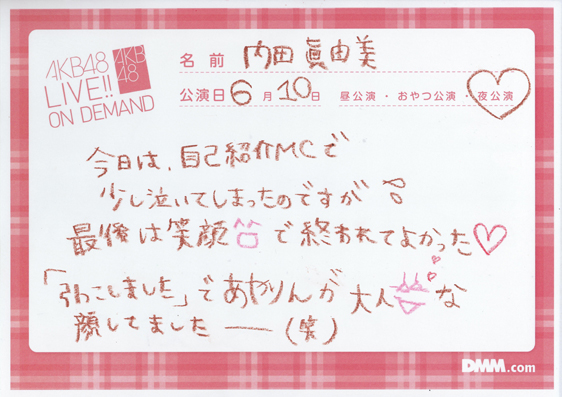 AKB48
LIVE!!
ON DEMAND
AKB
48
名前 内田眞由美
公演日 6月10日 昼公演・おやつ公演・夜公演
今日は、自己紹介MCで
少し泣いてしまったのですが
最後は笑顔で終われてよかった♡
「引っこしました」であやりんが大人な
顔してました――(笑)
DMM.com